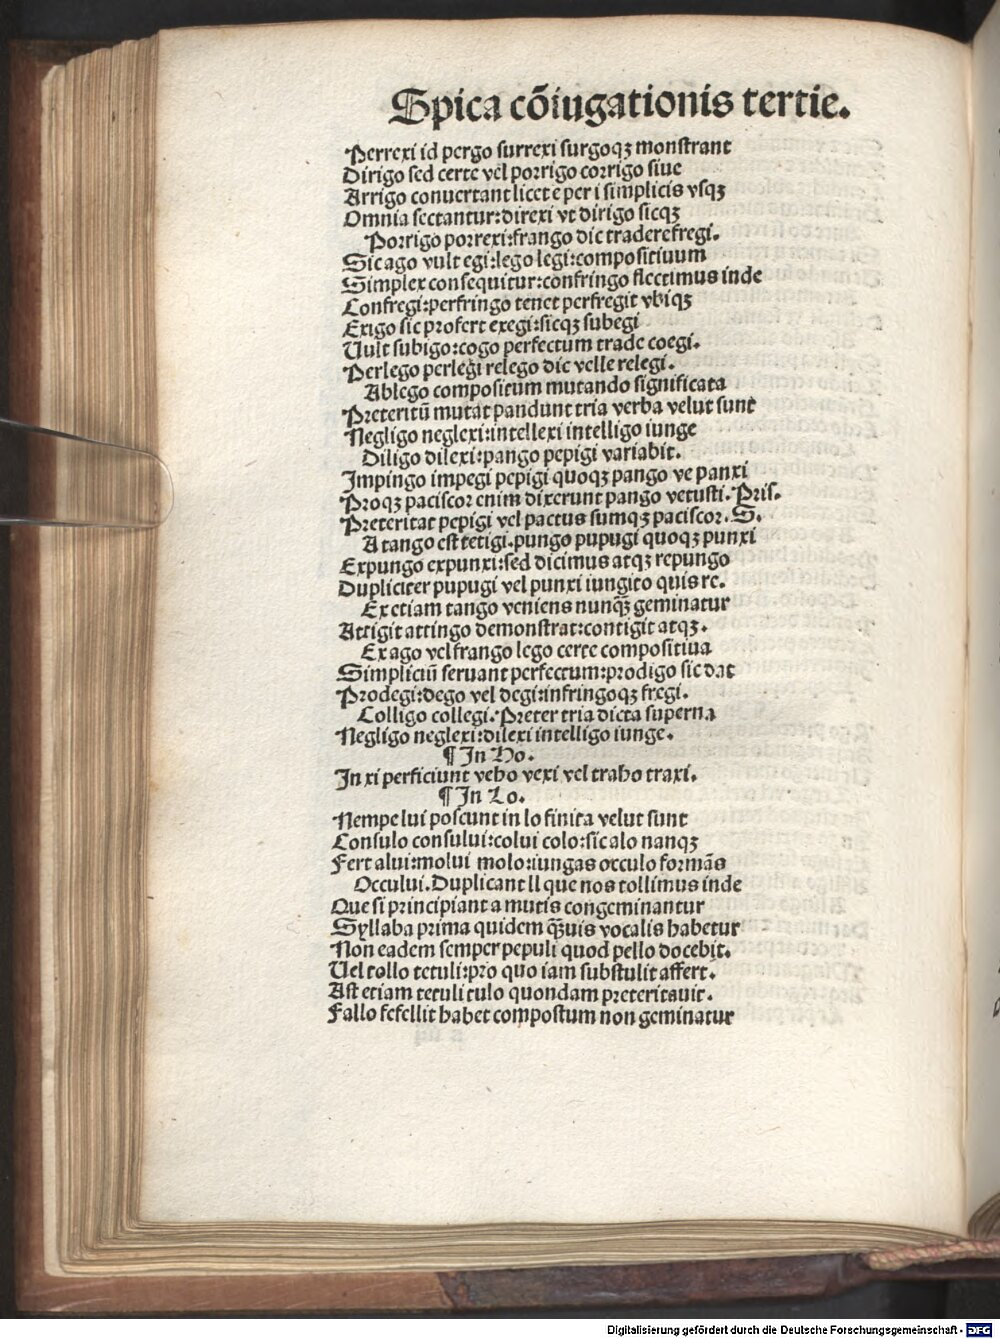 Spica cõiugationis tertie.
Perrexi id pergo surrexi surgoqꝫ monstrant
Dirigo sed certe vel porrigo corrigo siue
Arrigo conuertant licet e per i simplicis vsqꝫ
Omnia sectantur:direxi vt dirigo sicqꝫ
Porrigo porrexi:frango dic tradere fregi.
Sic ago vult egi:lego legi:compositiuum
Simplex consequitur:confringo flectimus inde
Confregi:perfringo tenet perfregit vbiqꝫ
Exigo sic profert exegi:sicqꝫ subegi
Uult subigo:cogo perfectum trade coegi.
Perlego perlegi relego dic velle relegi.
Ablego compositum mutando significata
Preteritũ mutat pandunt tria verba velut sunt
Negligo neglexi:intellexi intelligo iunge
Diligo dilexi:pango pepigi variabit.
Impingo impegi pepigi quoqꝫ pango ve panxi
Proqꝫ paciscor enim dixerunt pango vetusti.Pris.
Preteritat pepigi vel pactus sumqꝫ paciscor.S.
A tango est tetigi.pungo pupugi quoqꝫ punxi
Expungo expunxi:sed dicimus atqꝫ repungo
Dupliciter pupugi vel punxi iungito quis re.
Ex etiam tango veniens nunqꝫ̃ geminatur
Attigit attingo demonstrat:contigit atqꝫ.
Ex ago vel frango lego certe compositiua
Simpliciũ seruant perfectum:prodigo sic dat
Prodegi:dego vel degi:infringoqꝫ fregi.
Colligo collegi.Preter tria dicta superna
Negligo neglexi:dilexi intelligo iunge.
¶ In Ho.
In xi perficiunt veho vexi vel traho traxi.
¶ In Lo.
Nempe lui poscunt in lo finita velut sunt
Consulo consului:colui colo:sic alo nanqꝫ
Fert alui:molui molo:iungas occulo formãs
Occului.Duplicant ll que nos tollimus inde
Que si principiant a mutis congeminantur
Syllaba prima quidem qꝫ̃uis vocalis habetur
Non eadem semper pepuli quod pello docebit.
Uel tollo tetuli:pro quo iam substulit affert.
Ast etiam tetuli tulo quondam preteritauit.
Fallo fefellit habet compostum non geminatur
Digitalisierung gefördert durch die Deutsche Forschungsgemeinschaft - DFG